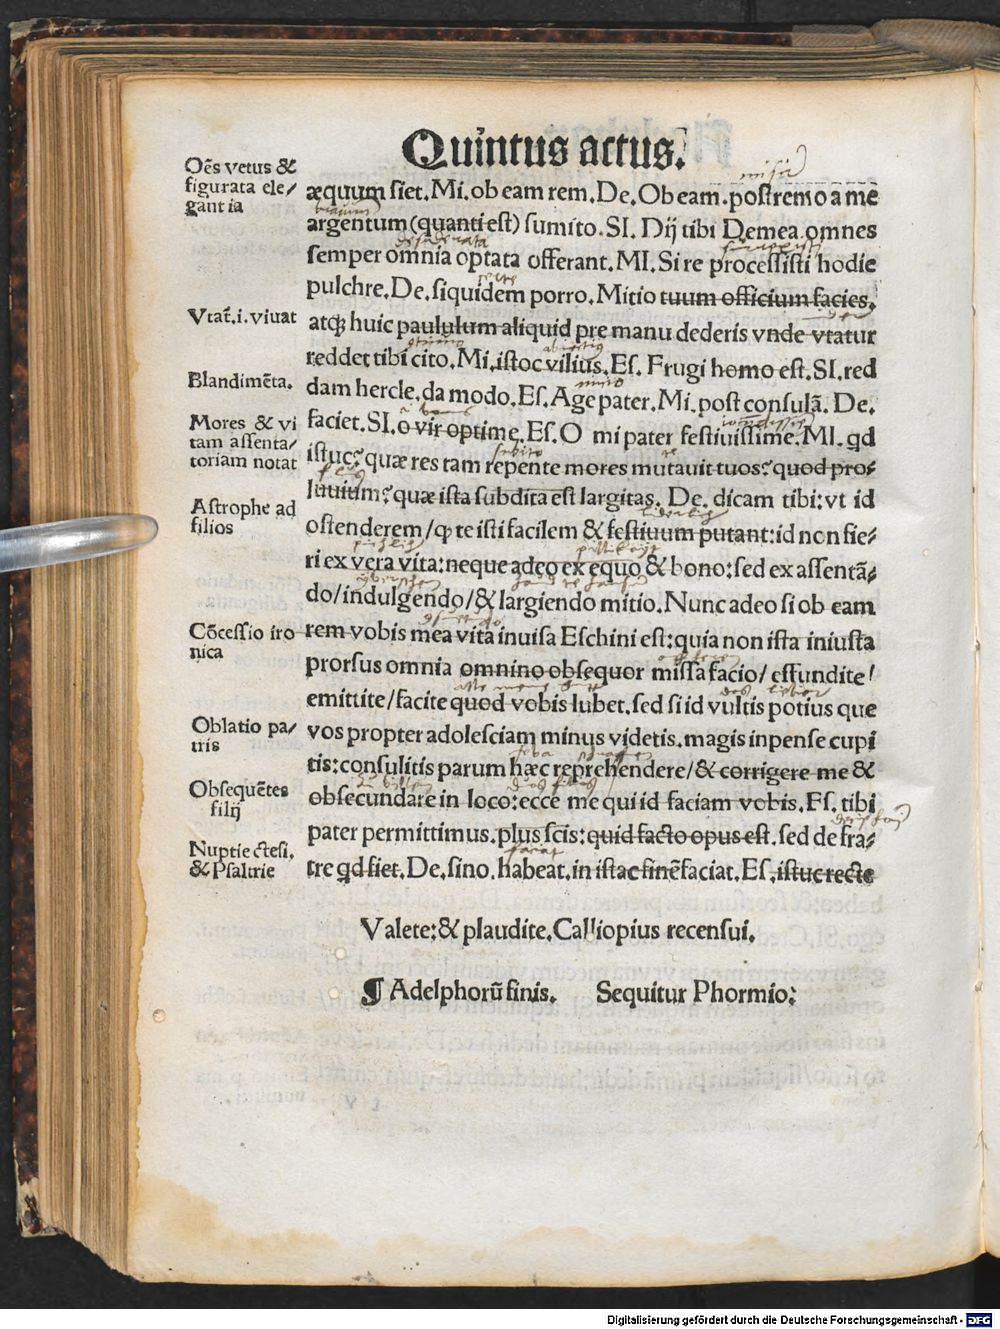 Quintus actus.
Oēs vetus &
figurata ele/
gantia
æquum siet. Mi. ob eam rem. De. Ob eam. postremo a me
argentum (quanti est) sumito. SI. Dij tibi Demea omnes
semper omnia optata offerant. MI. Si re processisti hodie
pulchre. De. siquidem porro. Mitio tuum officium facies.
Vtat̄.i.viuat
atqꝫ huic paululum aliquid pre manu dederis vnde vtatur
reddet tibi cito. Mi. istoc vilius. Es. Frugi homo est. SI. red
Blandimēta.
dam hercle, da modo. Es. Age pater. Mi. post consulā. De.
Mores & vi
tam assenta/
toriam notat
faciet. SI. o vir optime. Es. O mi pater festiuissime. MI. qd
istuc? quæ res tam repente mores mutauit tuos? quod pro/
luuium? quæ ista subdita est largitas. De. dicam tibi: vt id
Astrophe ad
filios
ostenderem/ ꝙ te isti facilem & festiuum putant: id non fie/
ri ex vera vita: neque adeo ex equo & bono: sed ex assentā/
do/ indulgendo/ & largiendo mitio. Nunc adeo si ob eam
Cōcessio iro
nica
rem vobis mea vita inuisa Eschini est: quia non ista iniusta
prorsus omnia omnino obsequor missa facio/ effundite/
emittite/ facite quod vobis lubet. sed si id vultis potius que
Oblatio pa/
tris
vos propter adolesciam minus videtis. magis inpense cupi
tis: consulitis parum hæc reprehendere/ & corrigere me &
Obsequētes
filij
obsecundare in loco: ecce me qui id faciam vobis. Es. tibi
pater permittimus. plus scis: quid facto opus est. sed de fra/
Nuptie ctesi.
& Psaltrie
tre qd fiet. De. sino. habeat. in istac finē faciat. Es. istuc recte
Valete: & plaudite. Calliopius recensui.
¶ Adelphorū finis. Sequitur Phormio:
Digitalisierung gefördert durch die Deutsche Forschungsgemeinschaft - DFG